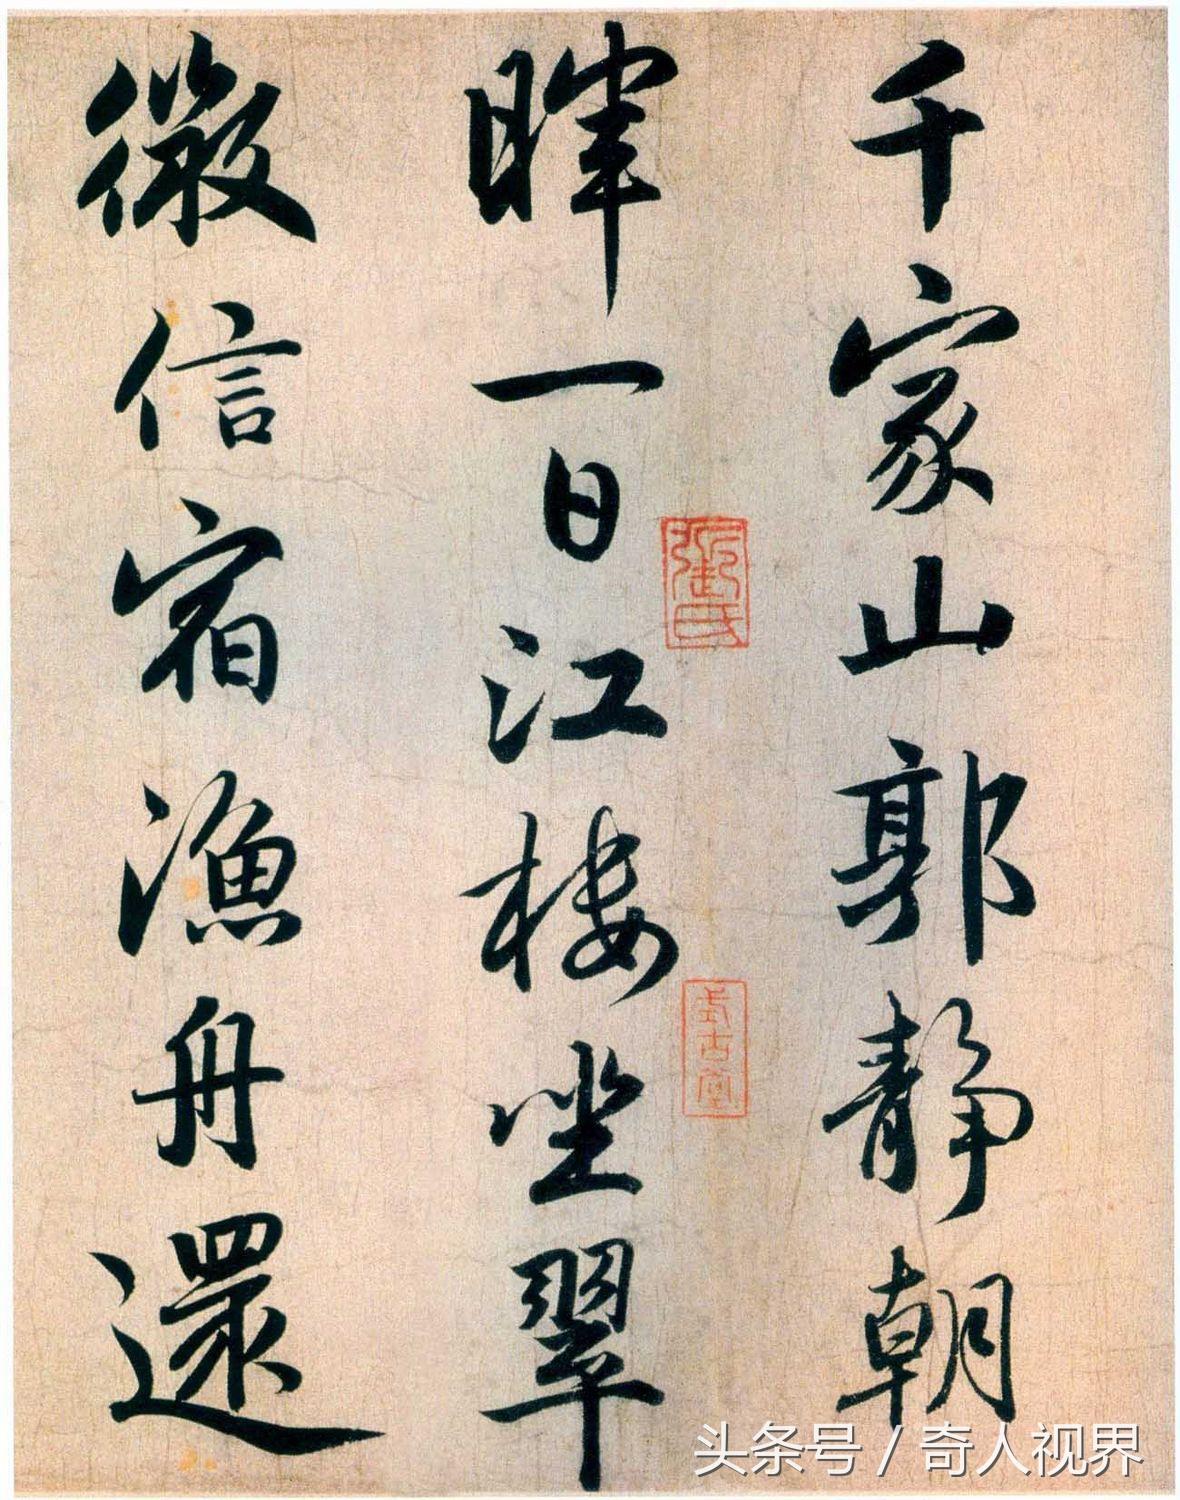 千家山郭靜朝
暉一日江樓坐翠
微信宿漁舟還
式古堂
头条号 / 奇人视界